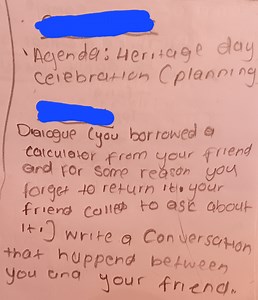 Agenda: Heritage day
celebration (planning
Dialogue (you borrowed a
calculator from your friend
and for some reason you
forget to return it., your
friend called to ask about
it.) write a conversation
that happend between
you and your friend.